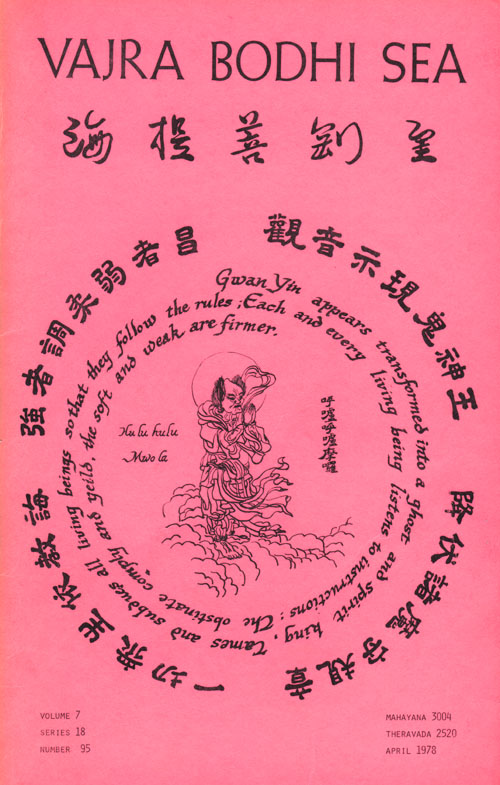 VAJRA BODHI SEA
金剛菩提海
觀音示現鬼神王
降伏諸魔守規章
一切眾生依教誨
強者調柔弱者昌
Gwan Yin appears transformed into a ghost and spirit king, Tames and subdues all living beings so that they follow the rules; Each and every living being listens to instructions: The obstinate comply and yeild, the soft and weak are firmer.
呼嚧呼嚧摩囉
Hu lu hulu
Mwo la
VOLUME 7
SERIES 18
NUMBER 95
MAHAYANA 3004
THERAVADA 2520
APRIL 1978